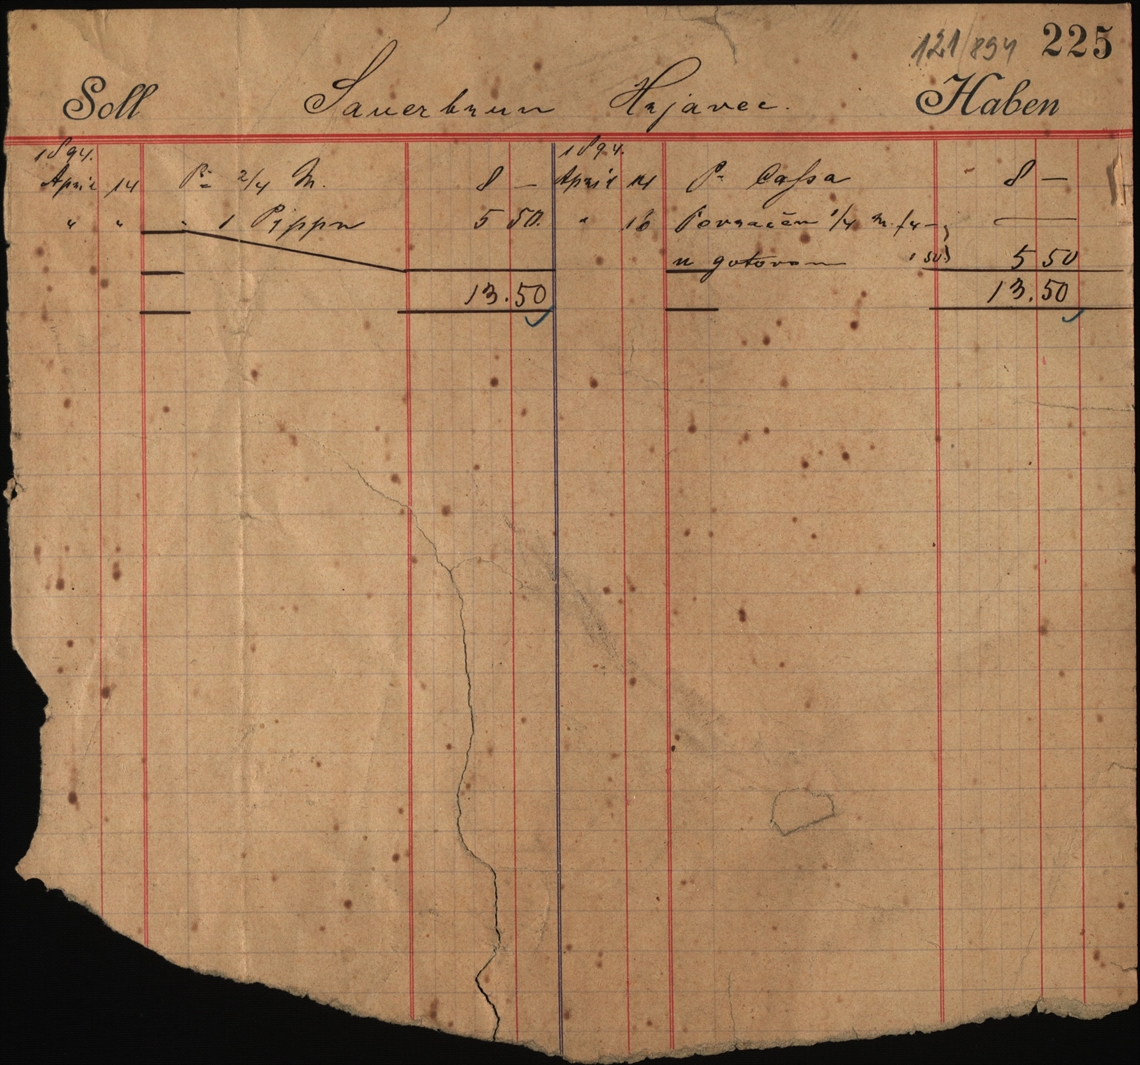 121/894 225
Soll Sauerbrun Hrjavec. Haben
1894. 1894.
April 14 Pr 2/4 M. 8 — April 14 Pr Cassa 8 —
" " " 1 Pippu 5 50. " 16 Povraćen 1/4 M. f 4 —
u gotovom 1 50 5 50
13.50 13.50